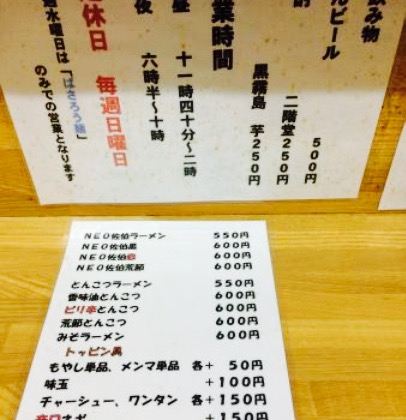 飲み物
んビール
５００円
二階堂 ２５０円
黒霧島 芋２５０円
業時間
昼 十一時四十分～二時
夜 六時半～十時
休日 毎週日曜日
週水曜日は「ばさろう麺」
のみでの営業となります
ＮＥＯ佐伯ラーメン ５５０円
ＮＥＯ佐伯黒 ６００円
ＮＥＯ佐伯 ６００円
ＮＥＯ佐伯荒節 ６００円
とんこつラーメン ５５０円
香味油とんこつ ６００円
ピリ辛とんこつ ６００円
荒節とんこつ ６００円
みそラーメン ６００円
トッピング
もやし単品、メンマ単品 各＋ ５０円
味玉 ＋１００円
チャーシュー、ワンタン 各＋１５０円
辛口ネギ ＋１５０円